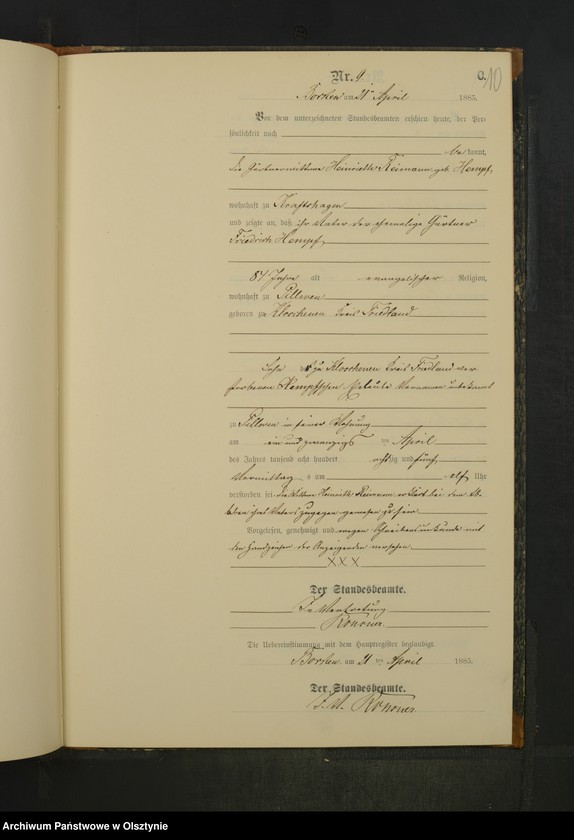 Nr. 9.
C.
10
Borken am 21ten April 1885.
Vor dem unterzeichneten Standesbeamten erschien heute, der Per-
sönlichkeit nach
be kannt,
die Gärtnerwittwe Heinriette Reimann geb. Hempf,
wohnhaft zu Kraftshagen
und zeigte an, daß ihr Vater der ehemalige Gärtner
Friedrich Hempf,
84 Jahre alt evangelischer Religion,
wohnhaft zu Pillwen
geboren zu Kloschenen Kreis Friedland
Sohn der zu Kloschenen Kreis Friedland ver-
storbenen Hempfschen Eheleute Vornamen unbekannt
zu Pillwen in seiner Wohnung
am ein und zwanzigsten April
des Jahres tausend acht hundert achtzig und fünf,
Vormittags um elf Uhr
verstorben sei. die Wittwe Heinriette Reimann erklärt bei dem Ab-
leben ihres Vaters zugegen gewesen zu sein
Vorgelesen, genehmigt und wegen Schreibensunkunde mit
den Handzeichen der Anzeigenden versehen
X X X
Der Standesbeamte.
In Vertretung
Die Uebereinstimmung mit dem Hauptregister beglaubigt
Borken am 21 ten April 1885.
Der Standesbeamte.
I. V.
Archiwum Państwowe w Olsztynie